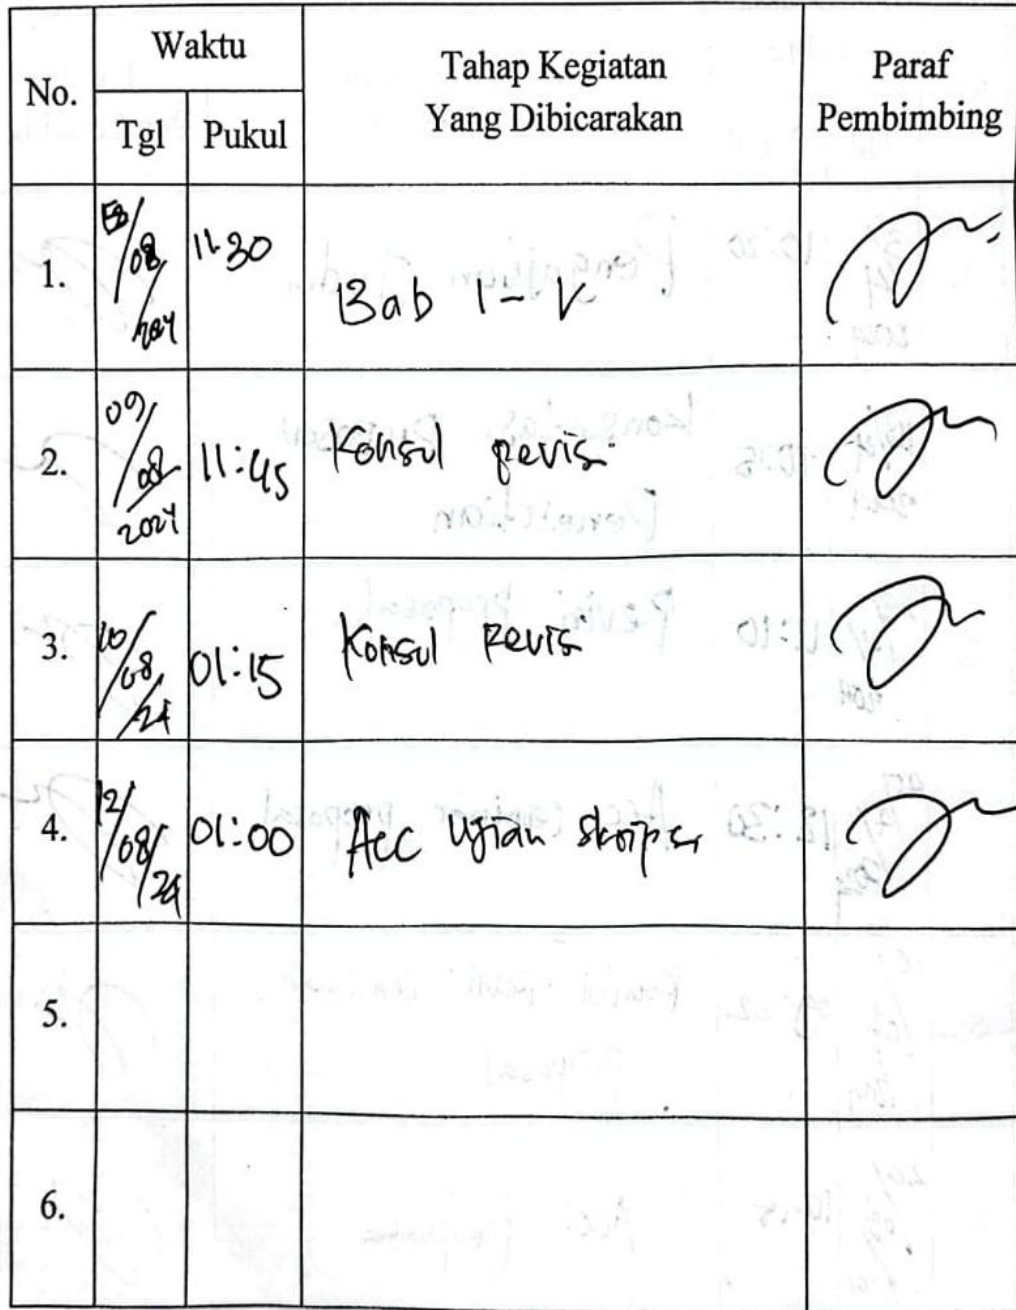 No.
Waktu
Tgl
Pukul
Tahap Kegiatan
Yang Dibicarakan
Paraf
Pembimbing
1.
/08/
2024
11.30
Bab I - V
2.
09/
08
2024
11:45
Konsul revisi
3.
10/
08/
24
01:15
Konsul Revisi
4.
12/
08/
24
01:00
Acc Ujian skripsi
5.
6.